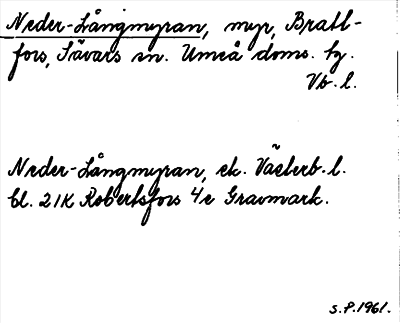 Neder-Långmyran, myr, Bratt-
fors, Sävars sn. Umeå doms. hg.
Vb. l.
Neder-Långmyran, ek. Västerb. l.
bl. 21K Robertsfors 4e Gravmark.
S.P. 1961.